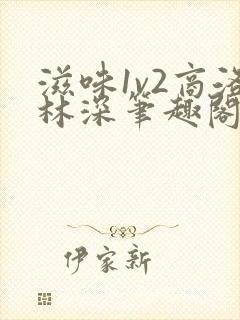 滋味1v2高洛
林深笔趣阁
伊家新